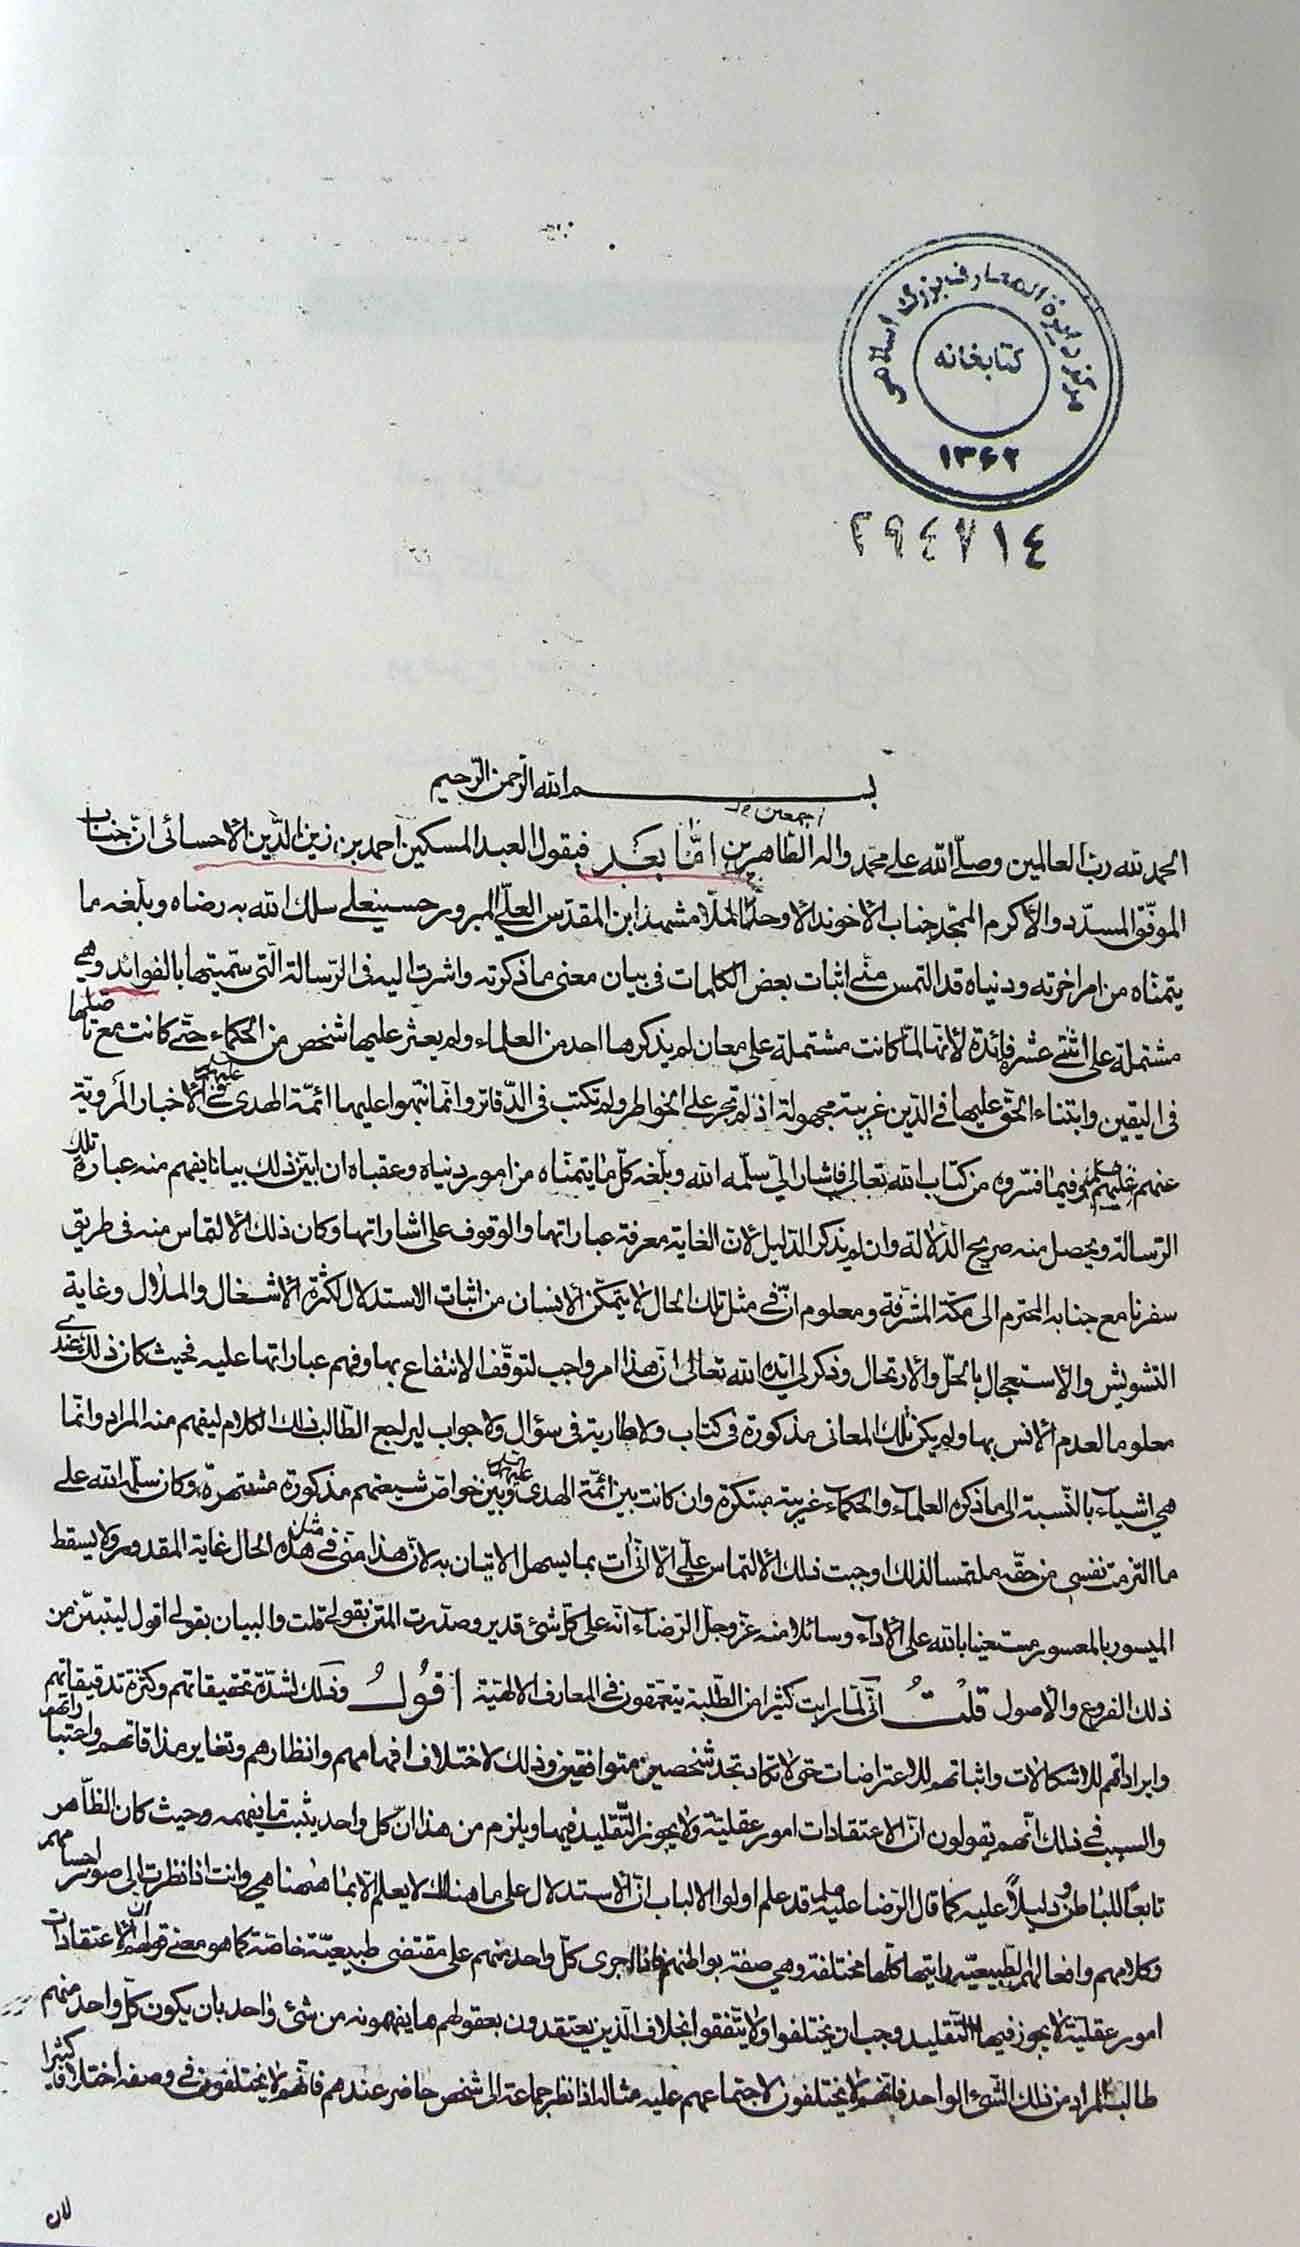 مركز دائرة المعارف بزرگ اسلامی
كتابخانه
۱۳۶۲
۲۹٤۷۱٤
بسم الله الرحمن الرحيم
اجمعين
الحمد لله رب العالمين وصلّى الله على محمد واله الطاهرين امّا بعد فيقول العبد المسكين احمد بن زين الدّين الاحسائى انّ جناب
الموفّق المسدّد والأكرم الممجّد جناب الاخوند الاوحد الملّا مشهد ابن المقدّس العلىّ المبرور حسينعلى سلك الله به رضاه وبلّغه ما
يتمنّاه من امر اخرته ودنياه قد التمس منّى اثبات بعض الكلمات فى بيان معنى ما ذكرته واشرت اليه فى الرّسالة الّتى سمّيتها بالفوائد وهى
مشتملة على اثنتى عشر فائدة لأنّها لمّا كانت مشتملة على معان لم يذكرها احد من العلماء ولم يعثر عليها شخص من الحكماء حتّى كانت مع تاصّلها
فى اليقين وابتناء الحق عليها فى الدّين غريبة مجهولة اذ لم تجر على الخواطر ولم تكتب فى الدّفاتر وانّما نبّهوا عليها ائمّة الهدى عليهم فى الاخبار المرويّة
عنهم وفيما فسّروه من كتاب الله تعالى فاشار الىّ سلّمه الله وبلّغه كلّ ما يتمنّاه من امور دنياه وعقباه ان ابيّن ذلك بيانا يفهم منه عبارة تلك
الرّسالة ويحصل منه صريح الدّلالة وان لم يذكر الدّليل لانّ الغاية معرفة عباراتها والوقوف على اشاراتها وكان ذلك الالتماس منه فى طريق
سفرنا مع جنابه المحترم الى مكّة المشرّفة ومعلوم انّ فى مثل تلك الحال لا يتمكّن الانسان من اثبات الاستدلال لكثرة الاشغال والملال وغاية
التشويش والاستعجال بالحلّ والارتحال وذكر لى ايّده الله تعالى انّ هذا امر واجب لتوقّف الانتفاع بها وفهم عباراتها عليه فحيث كان ذلك عندى
معلوما لعدم الانس بها ولم يكن تلك المعانى مذكورة فى كتاب ولا طارية فى سؤال ولا جواب ليراجع الطّالب ذلك الكلام ليفهم منه المراد وانّما
هى اشياء بالنّسبة الى ما ذكره العلماء والحكماء غريبة مبتكرة وان كانت بين ائمّة الهدى عليهم وبين خواصّ شيعتهم مذكورة مشتهرة وكان سلّمه الله على
ما التزمت نفسى من حقّه ملتمسا لذلك اوجبت ذلك الالتماس علىّ الّا انّى ات بما يسهل الاتيان به لانّ هذا منّى فى مثل هذه الحال غاية المقدور ولا يسقط
الميسور بالمعسور مستعينا بالله على الأداء وسائلا منه عزّ وجلّ الرّضاء انّه على كلّ شئ قدير وصدّرت المتن بقولى قلت والبيان بقولى اقول ليتبيّن من
ذلك الفروع والاصول قلت انّى لمّا رايت كثيرا من الطّلبة يتعمّقون فى المعارف الالهيّة اقول وذلك لشدّة تحقيقاتهم وكثرة تدقيقاتهم
وايراداتهم للاشكالات واثباتهم للاعتراضات حتى لا تكاد تجد شخصين متوافقين وذلك لاختلاف افهامهم وانظارهم وتغاير مذاقاتهم واعتباراتهم
والسبب فى ذلك انّهم يقولون انّ الاعتقادات امور عقليّة ولا يجوز التّقليد فيها ويلزم من هذا انّ كلّ واحد يثبت ما يفهمه وحيث كان الظّاهر
تابعًا للباطن ودليلًا عليه كما قال الرّضا عليه قد علم اولوا الالباب انّ الاستدلال على ما هنالك لا يعلم الّا بما هيهنا وانت اذا نظرت الى صور اجسامهم
وكلامهم وافعالهم الطّبيعيّه رايتها كلّها مختلفة وهى صفة بواطنهم فاذا جرى كلّ واحد منهم على مقتضى طبيعيّة خاصّة كما هو معنى قولهم انّ الاعتقادات
امور عقليّة لا يجوز فيها التّقليد وجب ان يختلفوا ولا يتّفقوا بخلاف الّذين يعتقدون بعقولهم ما يفهمونه من شئ واحد بان يكون كلّ واحد منهم
طالب المراد من ذلك الشّئ الواحد فانّهم لا يختلفون لاجتماعهم عليه مثاله اذا نظر جماعة الى شخص حاضر عندهم فانّهم لا يختلفون فى وصفه اختلافا كثيرا
لان